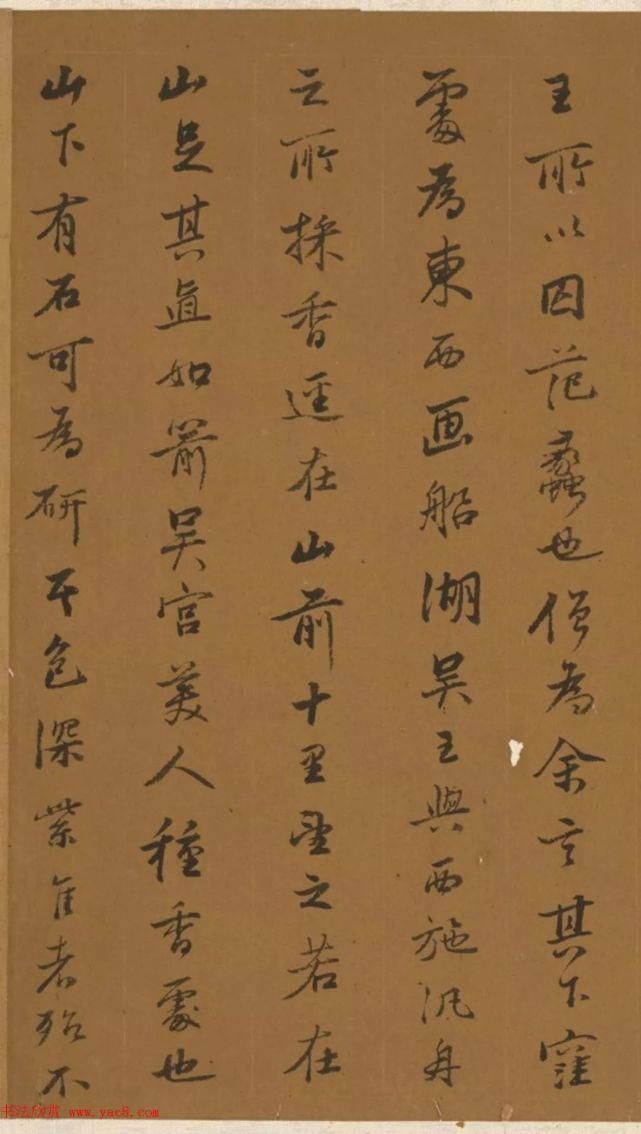 王所以囚范蠡也僧為余言其下窪
處為東西画船湖吴王與西施汎舟
之所採香逕在山前十里望之若在
山足其直如箭吴宫美人種香處也
山下有石可為研其色深紫佳者殆不
书法欣赏 www.yac8.com